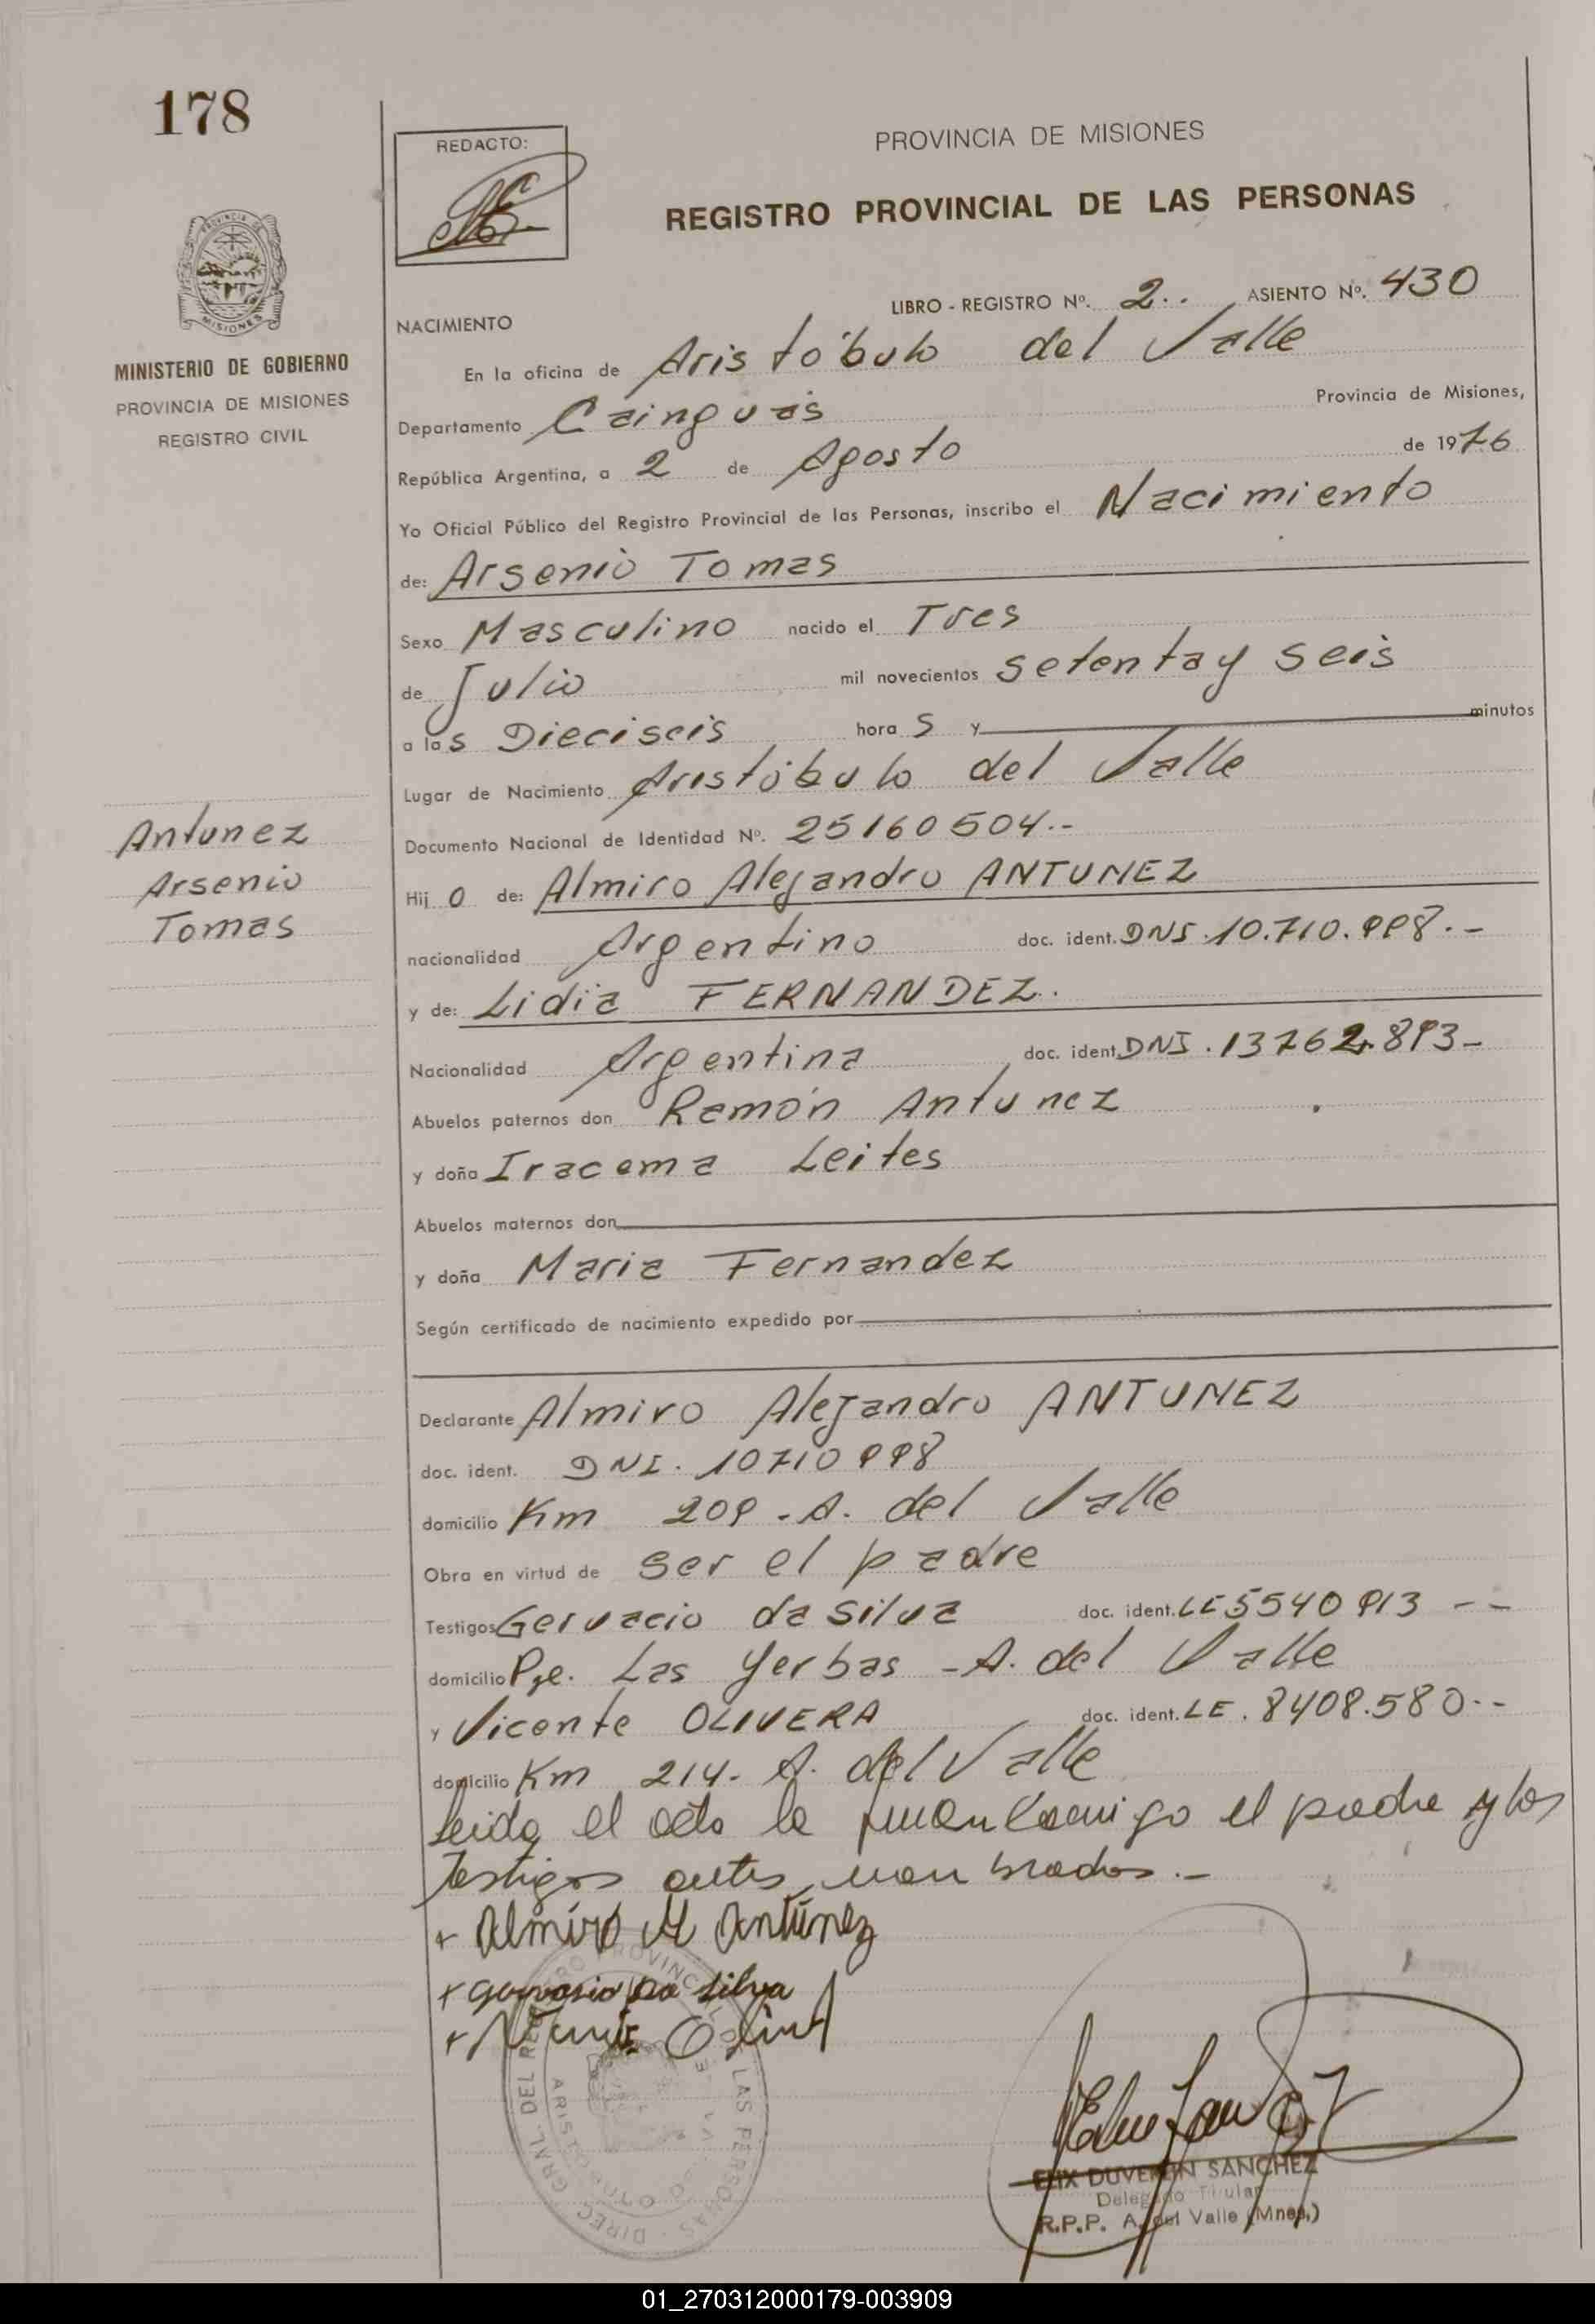 178
REDACTO:
PROVINCIA DE MISIONES
REGISTRO PROVINCIAL DE LAS PERSONAS
PROVINCIA DE
MISIONES
MINISTERIO DE GOBIERNO
PROVINCIA DE MISIONES
REGISTRO CIVIL
LIBRO - REGISTRO Nº. 2.. ASIENTO Nº. 430
NACIMIENTO
En la oficina de Aristóbulo del Valle
Departamento Cainguás Provincia de Misiones,
República Argentina, a 2 de Agosto de 1976
Yo Oficial Público del Registro Provincial de las Personas, inscribo el Nacimiento
de: Arsenio Tomas
Sexo Masculino nacido el Tres
de Julio mil novecientos setenta y seis
a las Dieciseis hora s y minutos
Lugar de Nacimiento Aristóbulo del Valle
Documento Nacional de Identidad Nº. 25160504.-
Hij o de: Almiro Alejandro ANTUNEZ
nacionalidad Argentino doc. ident. DNI. 10.710.998.-
y de: Lidia FERNANDEZ.
Nacionalidad Argentina doc. ident. DNI. 13762.893-
Abuelos paternos don Ramón Antunez
y doña Iracema Leites
Abuelos maternos don
y doña Maria Fernandez
Según certificado de nacimiento expedido por
Antunez
Arsenio
Tomas
Declarante Almiro Alejandro ANTUNEZ
doc. ident. DNI. 10710998
domicilio Km 209 - A. del Valle
Obra en virtud de ser el padre
Testigos Gervacio da Silva doc. ident. LE 5540913 --
domicilio Pje. Las Yerbas - A. del Valle
y Vicente OLIVERA doc. ident. LE. 8408.580--
domicilio Km 214- A. del Valle
leida el acta la firman conmigo el padre y los
testigos antes nombrados.-
+ Almiro A Antúnez
+ Gervasio Da Silva
ELIX DUVERGN SANCHEZ
Delegado Titular
R.P.P. A. del Valle (Mnes.)
01_270312000179-003909